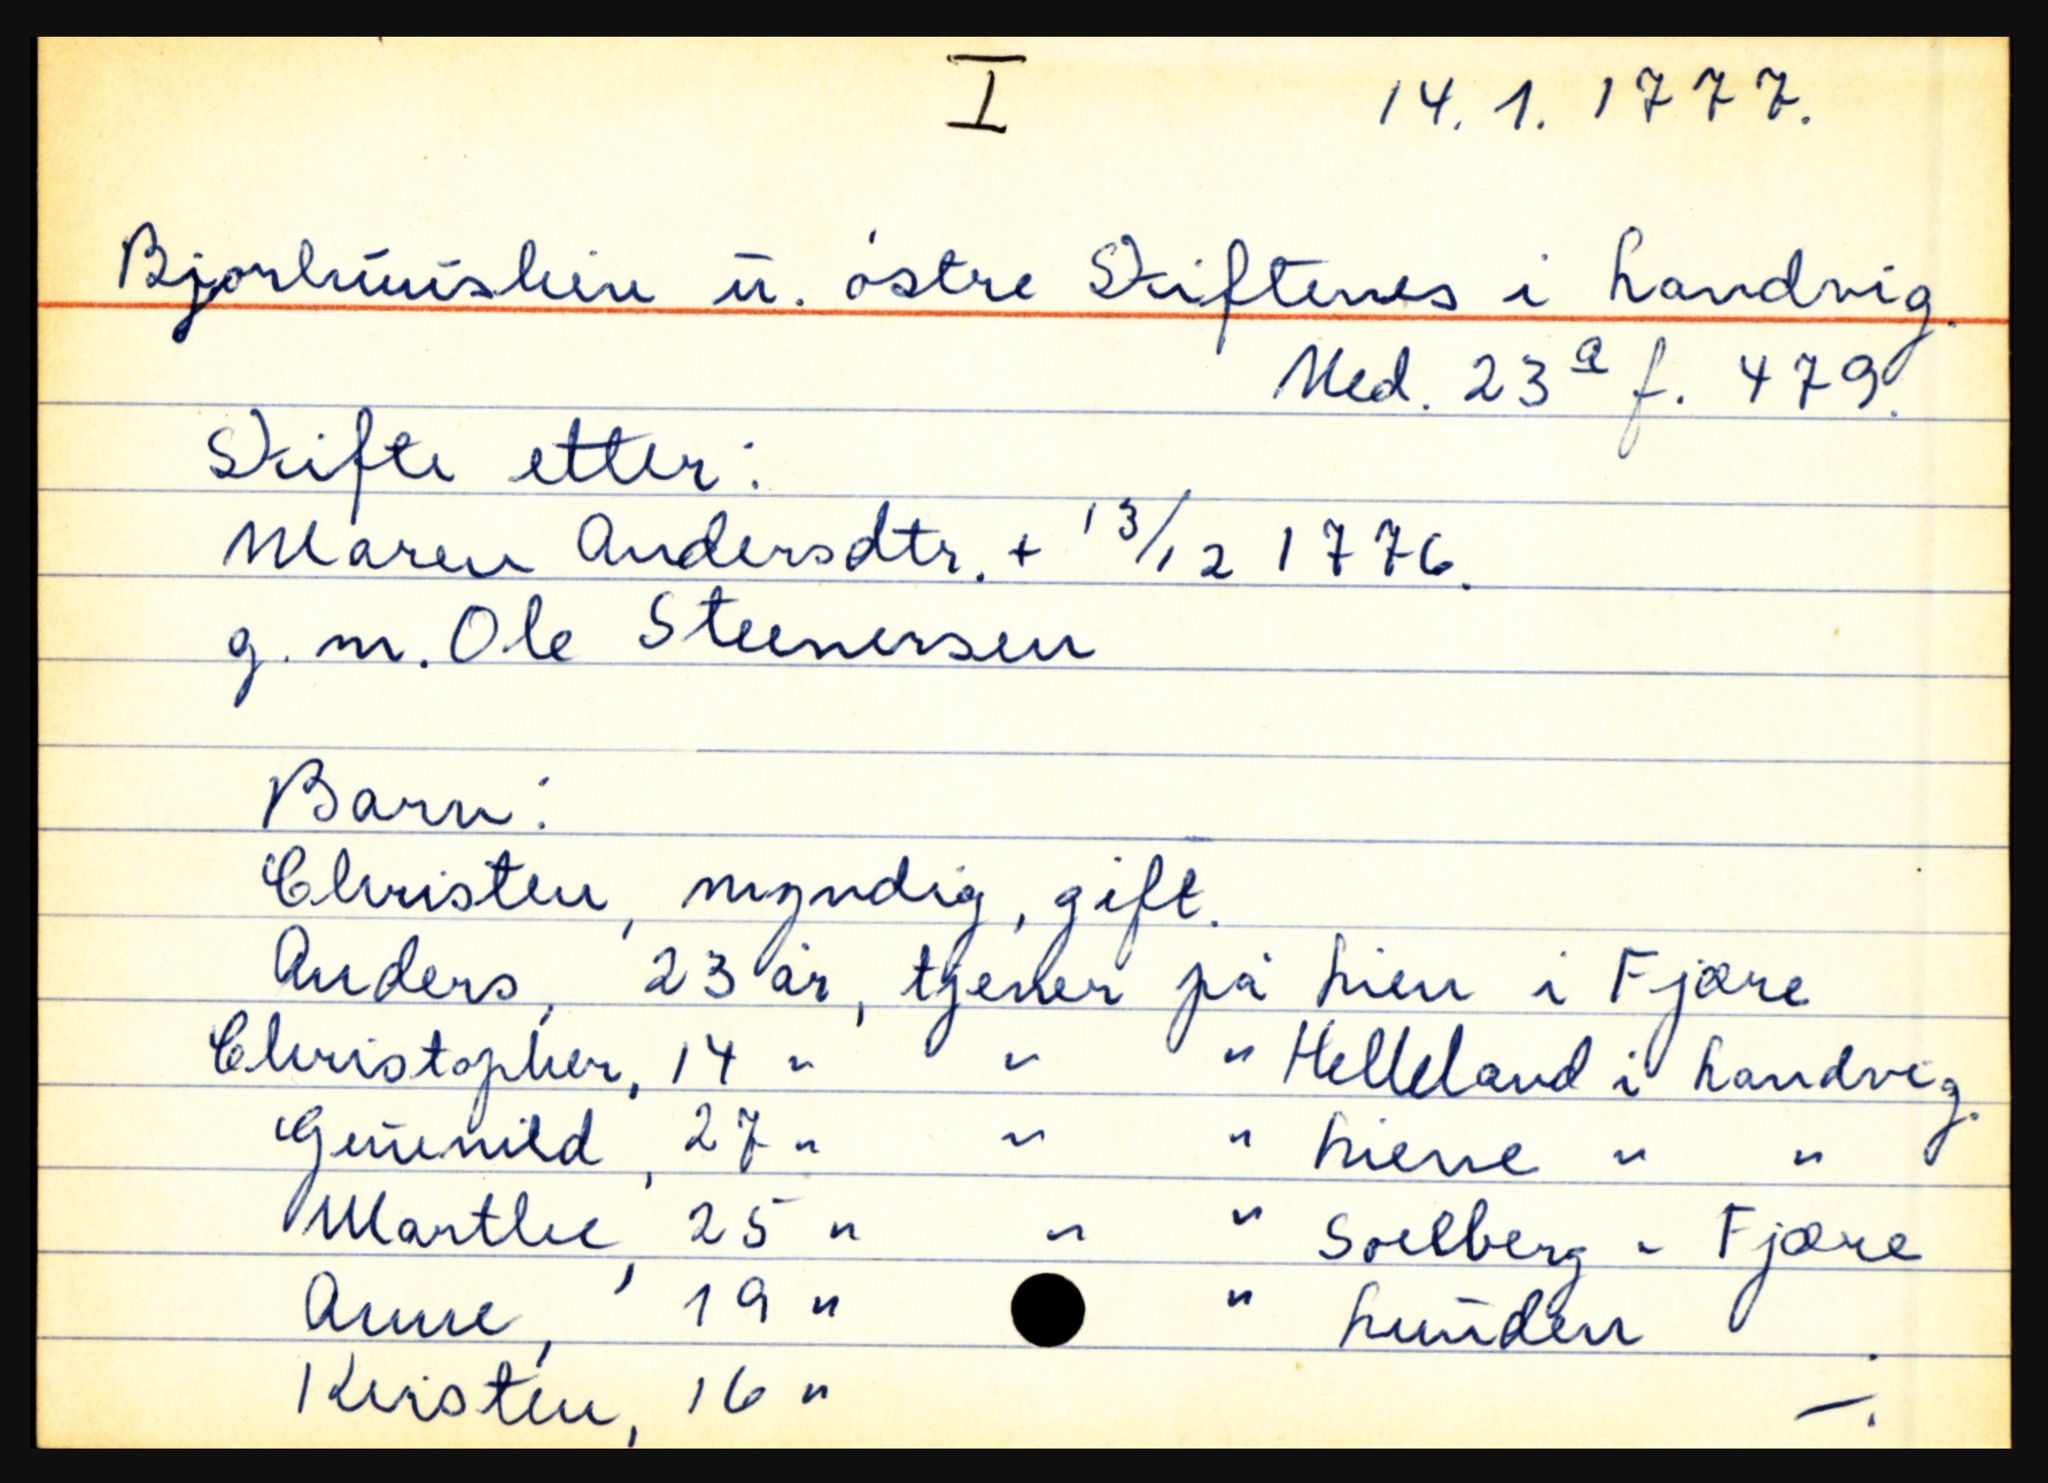 I 14.1.1777.
Bjorhuusheien u. östre Skiftenes i Landvig.
Ned. 23a f. 479.
Skifte etter:
Maren Andersdtr. + 13/12 1776.
g. m. Ole Steenersen
Barn:
Christen, myndig, gift.
Anders, 23 år, tjener på Lien i Fjære
Christopher, 14 " " " Helleland i Landvig.
Gunnild, 27 " " " Liene " "
Marthe, 25 " " " Soelberg " Fjære
Anne, 19 " " Lunden
Kirsten, 16 "